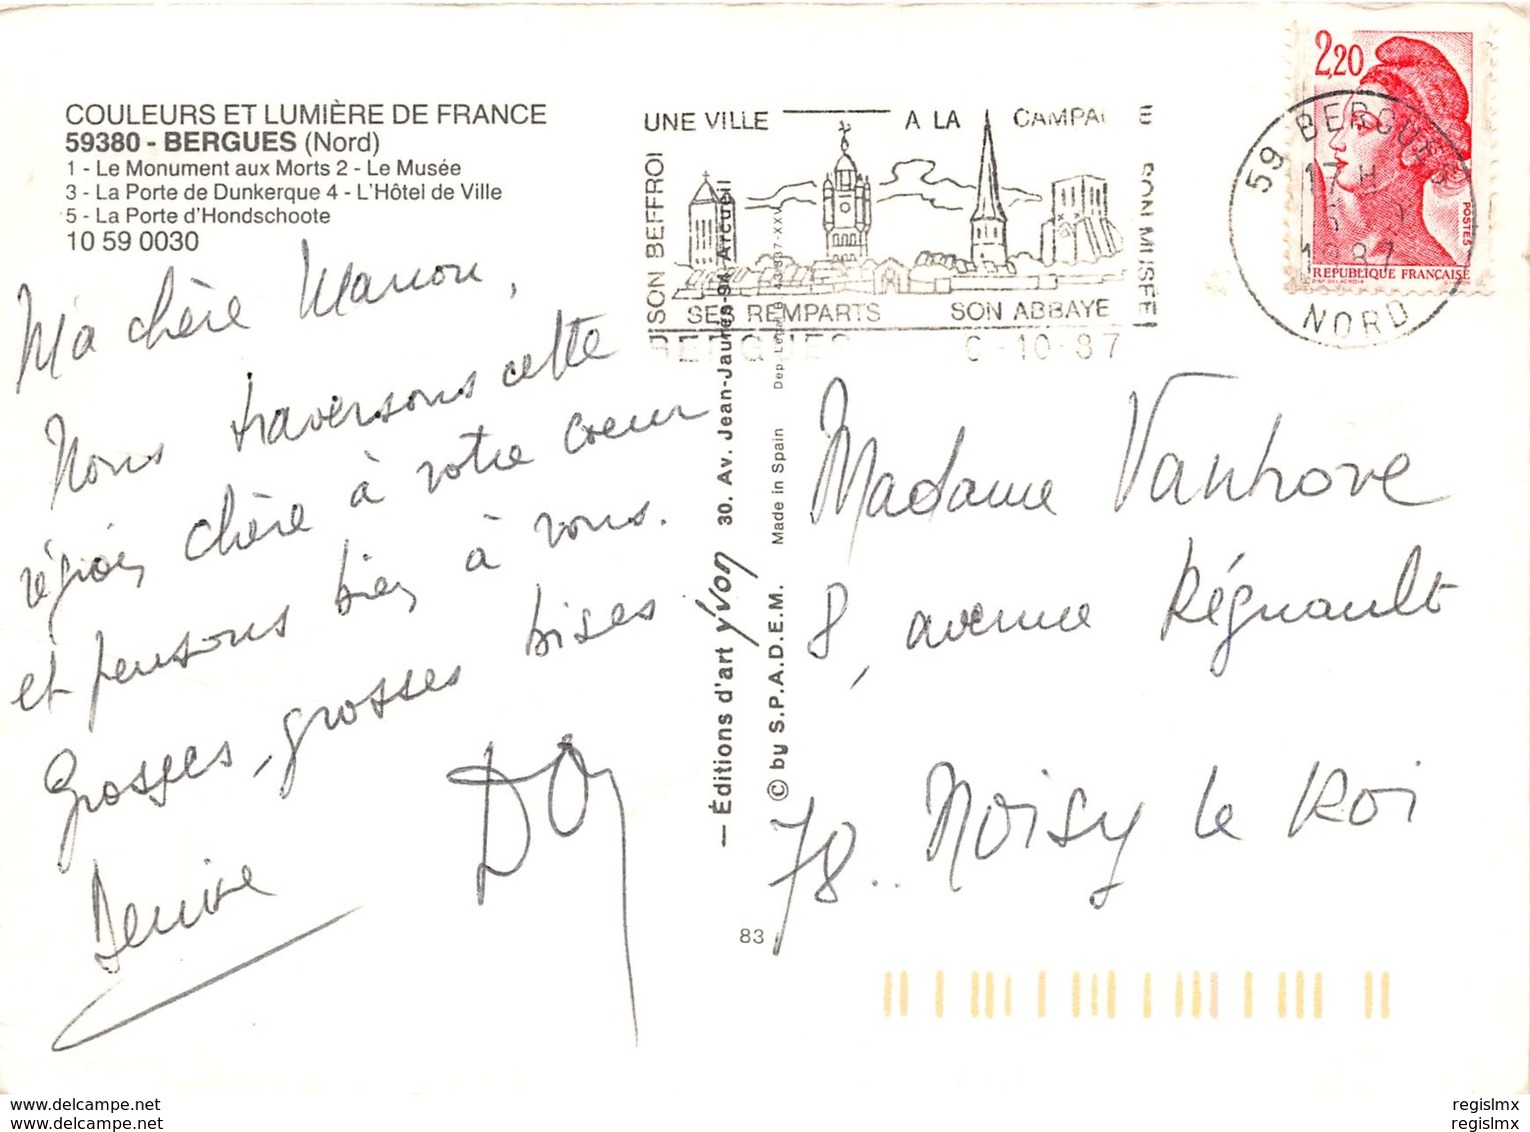 COULEURS ET LUMIÈRE DE FRANCE
59380 - BERGUES (Nord)
1 - Le Monument aux Morts 2 - Le Musée
3 - La Porte de Dunkerque 4 - L'Hôtel de Ville
5 - La Porte d'Hondschoote
10 59 0030
Ma chère Manon,
Nous traversons cette
région chère à votre coeur
et pensons bien à vous.
Grosses, grosses bises
Denise
UNE VILLE A LA CAMPA E
SON BEFFROI
SON MUSÉE
SES REMPARTS SON ABBAYE
BERGUES 6-10-87
2,20
POSTES
REPUBLIQUE FRANÇAISE
59 BERGUES
17 H
1987
NORD
— Éditions d'art yvon 30. Av. Jean-Jaurès-94 Arcueil
© by S.P.A.D.E.M. Made in Spain
83
Madame Vanhove
8, avenue Régnault
78.. Noisy le Roi
www.delcampe.net
www.delcampe.net
regislmx
regislmx